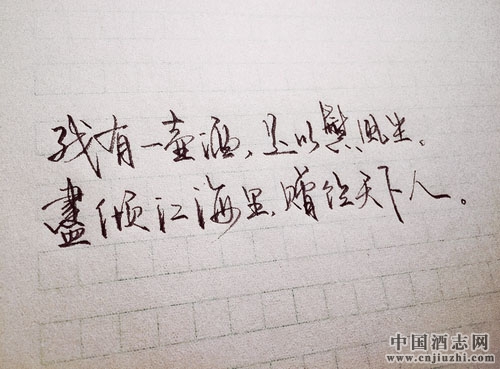 我有一壶酒，足以慰风尘。
盡倾江海里，赠饮天下人。
中国酒志网
www.cnjiuzhi.com